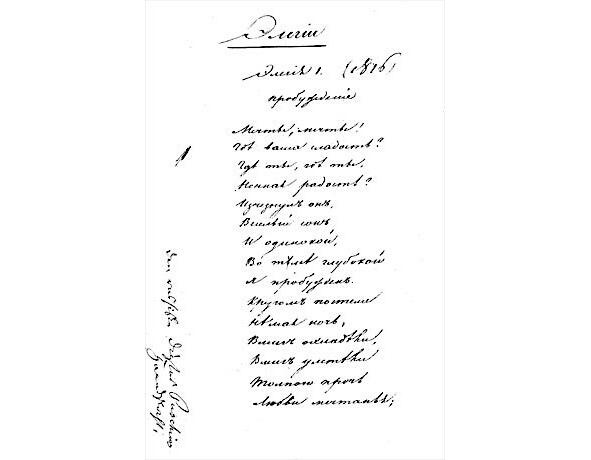 Элегiи
Элегiя 1. (1816)
пробужденiе
Мечты, мечты!
Гдѣ ваша сладость?
Гдѣ ты, гдѣ ты,
Ночная радость?
Изчезнулъ онъ,
Веселый сонъ
И одинокой,
Во тьмѣ глубокой
Я пробужденъ.
Кругомъ постели
Нѣмая ночь,
Вмигъ охладѣли,
Вмигъ улетѣли
Толпою прочь
Любви мечтанья;
Puschkin